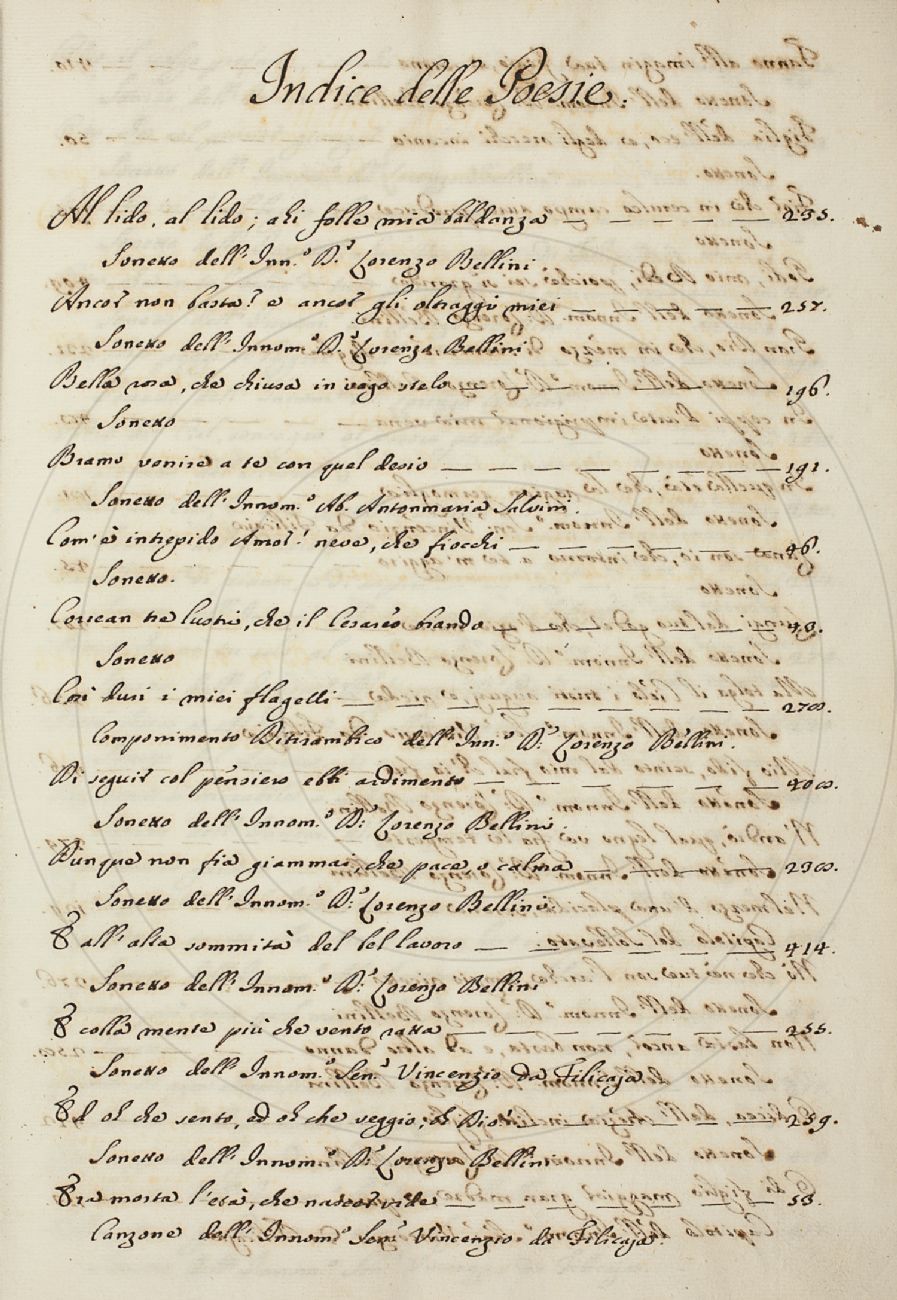 Indice delle Poesie.
Al lido, al lido; ahi folle mia baldanza — — — — 235.
Sonetto dell'Inn.º D.r Lorenzo Bellini
Ancor non basta? e ancor gli oltraggi miei — — — — 257.
Sonetto dell'Innom.º D.r Lorenzo Bellini
Bella rosa, che chiusa in vago stelo — — — — 196.
Sonetto
Bramo venire a te con quel desio — — — — 191.
Sonetto dell'Innom.º Ab. Antonmaria Salvini.
Com'è intrepido Amor! neve, che fiocchi — — — — 46.
Sonetto.
Correan tre lustri, che il Cesareo brando — — — — 43.
Sonetto
Così duri i miei flagelli — — — — 270.
Componimento Ditirambico dell'Inn.º D.r Lorenzo Bellini.
Di seguir col pensiero ebbi ardimento — — — — 400.
Sonetto dell'Innom.º D.r Lorenzo Bellini.
Dunque non fia giammai, che pace, o calma — — — — 230.
Sonetto dell'Innom.º D.r Lorenzo Bellini
E all'alta sommità del bel lavoro — — — — 414.
Sonetto dell'Innom.º D.r Lorenzo Bellini
E colla mente più che vento ratta — — — — 255.
Sonetto dell'Innom.º Sen.r Vincenzio da Filicaja
Ed oh che sento, ed oh che veggio, oh Dio! — — — — 259.
Sonetto dell'Innom.º D.r Lorenzo Bellini
Era morta l'età, che nascer vide — — — — 53.
Canzone dell'Innom.º Sen.r Vincenzio da Filicaja.